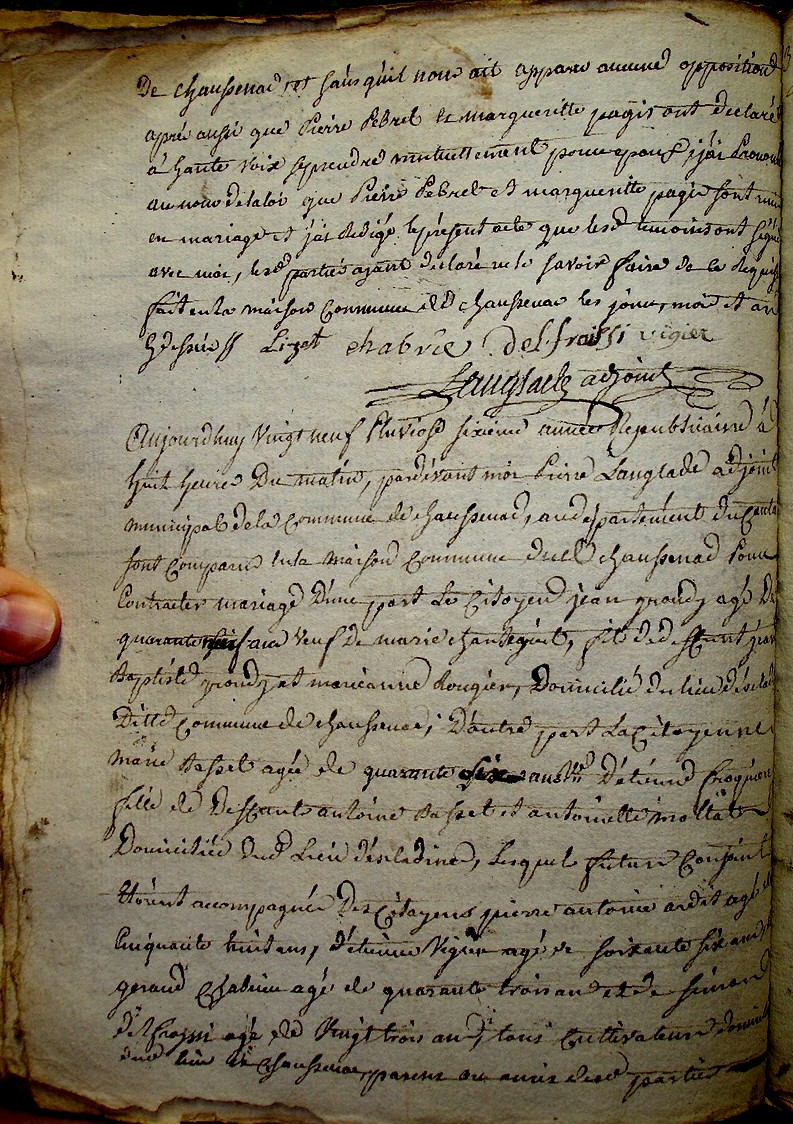 De chaussenac, et sans quil nous ait apparu aucune opposition
apres aussi que Pierre Pebrel et margueritte pagis ont declaré
a haute voix se prendre mutuellement pour epoux, j'ai prononcé
au nom de la loi que Pierre Pebrel et margueritte pagis sont unis
en mariage et j'ai redigé le présent acte que lesd. temoins ont signé
avec moi, lesd parties ayant declaré ne le savoir faire de ce requis
fait en la maison Commune dud chaussenac les jour, mois et an
Lizet chabrie delfraissi vigier
Langlade adjoint
Aujourdhuy Vingt neuf Pluviose sixieme année Republicaine à
huit heures Du matin, pardevant moi Pierre Langlade adjoint
municipal de la Commune de chaussenac, au departement du Cantal
sont Comparus en la maison Commune dud chaussenac Pour
Contracter mariage D'une part Le Citoyen jean agé De
quarante ans Veuf de marie fils de deffunt jean
Baptiste et marianne Rougier, Domicilié du lieu
Ditte Commune de chaussenac; D'autre part La Citoyenne
marie Basset agée de quarante six ans D'etienne
fille de Deffunts antoine Basset et antoinette
Domiciliée dud Lieu lesquels futurs Conjoints
etoient accompagnés Des Citoyens pierre antoine agé de
Cinquante huit ans, d'etienne Vigier agé de soixante six ans
geraud Chabrie agé de quarante trois ans et de simon
delfraissi agé de Vingt trois ans, tous Cultivateurs
dud lieu de Chaussenac, parens ou amis desd parties